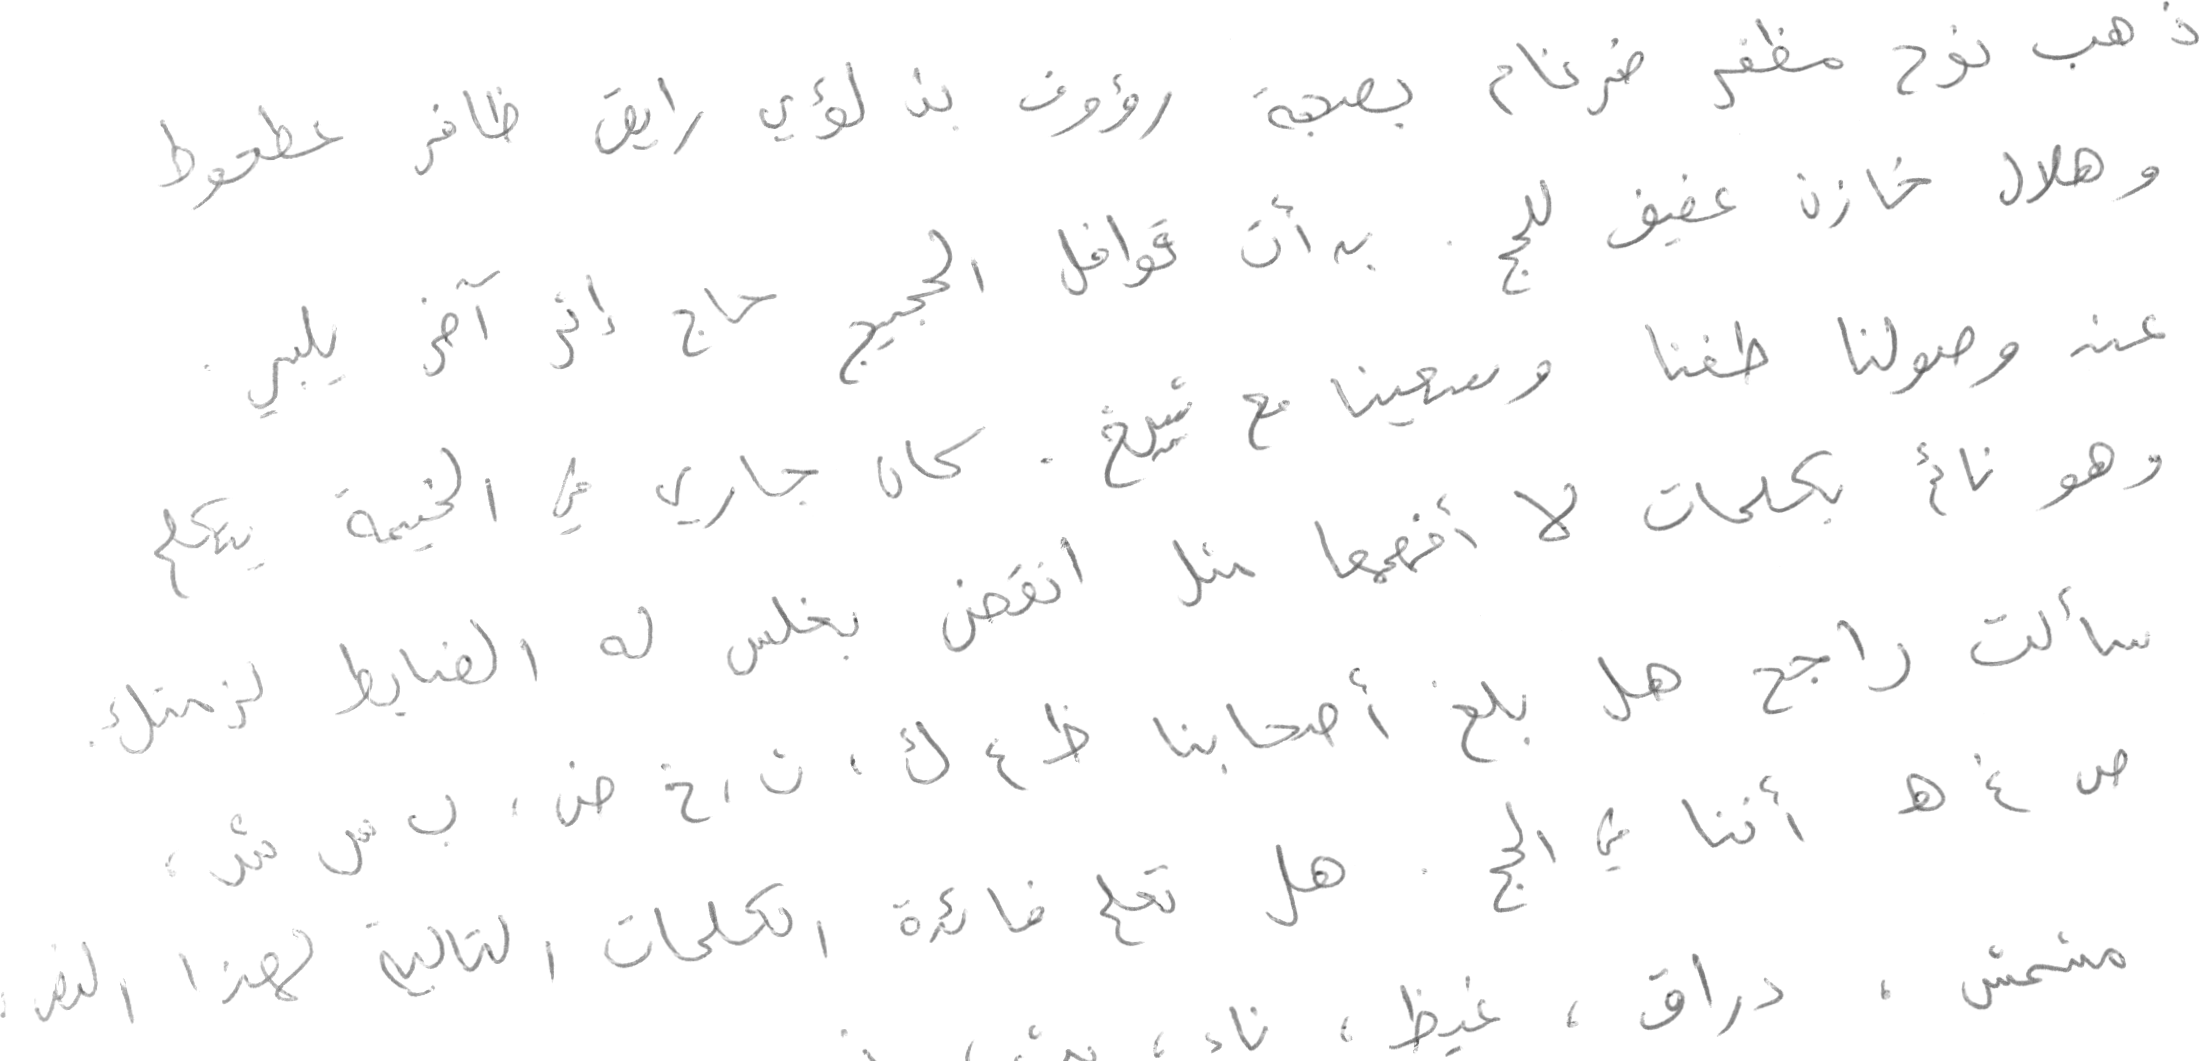 ذهب نوح مظفر ضرغام بصحبة رؤوف بن لؤي رايق ظافر عطعوط
وهلال خازن عفيف للحج. بدأت قوافل الحجيج حاج إثر آخر يلبي.
عند وصولنا طفنا وسعينا مع شيخ. كان جاري في الخيمة يتكلم
وهو نائم بكلمات لا أفهمها مثل انقض بغلس له الضابط لزمتك.
سألت راجح هل بلغ أصحابنا ظ ء ك، ن، خ ض، ب س ش،
ص غ ه أننا في الحج. هل تعلم فائدة الكلمات التالية لهذا النص،
مشمش، دراق، غيظ، ناء،